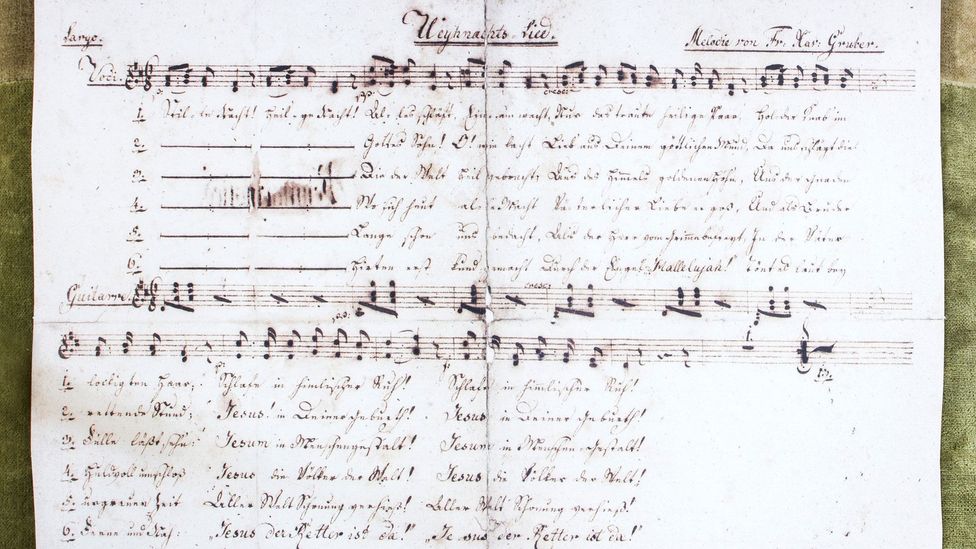 Largo. Weyhnachts Lied. Melodie von Fr. Xav: Gruber.
Voci.
1. Stil-le Nacht! Heil-ge Nacht! Al-les schläft, Eins am wacht, Nur das traute heilige Paar, Holder Knab im
2. Gottes Sohn! O! wie lacht Lieb aus Deinem göttlichen Mund, Da uns schlägt die
3. Die der Welt Heil gebracht, Aus des Himmels goldenen Höhn, Aus der Gnaden
4. Wo sich heut alle Macht Väterlicher Liebe ergoß, Und als Bruder
5. Lange schon uns bedacht, Als der Herr vom Grimme befreyt, In der Väter
6. Hirten erst kund gemacht Durch der Engel Hallelujah! Tönt es laut bey
Guitarre. cresc:
1. lockigten Haar; Schlafe in himlischer Ruh! Schlafe in himlischer Ruh!
2. rettende Stund; Jesus! in Deiner Geburth! Jesus in Deiner Geburth!
3. Fülle läßt sehn: Jesum in Menschengestalt! Jesum in Menschengestalt!
4. Huldvoll umschloß Jesus die Völker der Welt! Jesus die Völker der Welt!
5. urgrauer Zeit Aller Welt Schonung verhieß! Aller Welt Schonung verhieß!
6. Ferne und Nah: "Jesus der Retter ist da!" "Jesus der Retter ist da!"